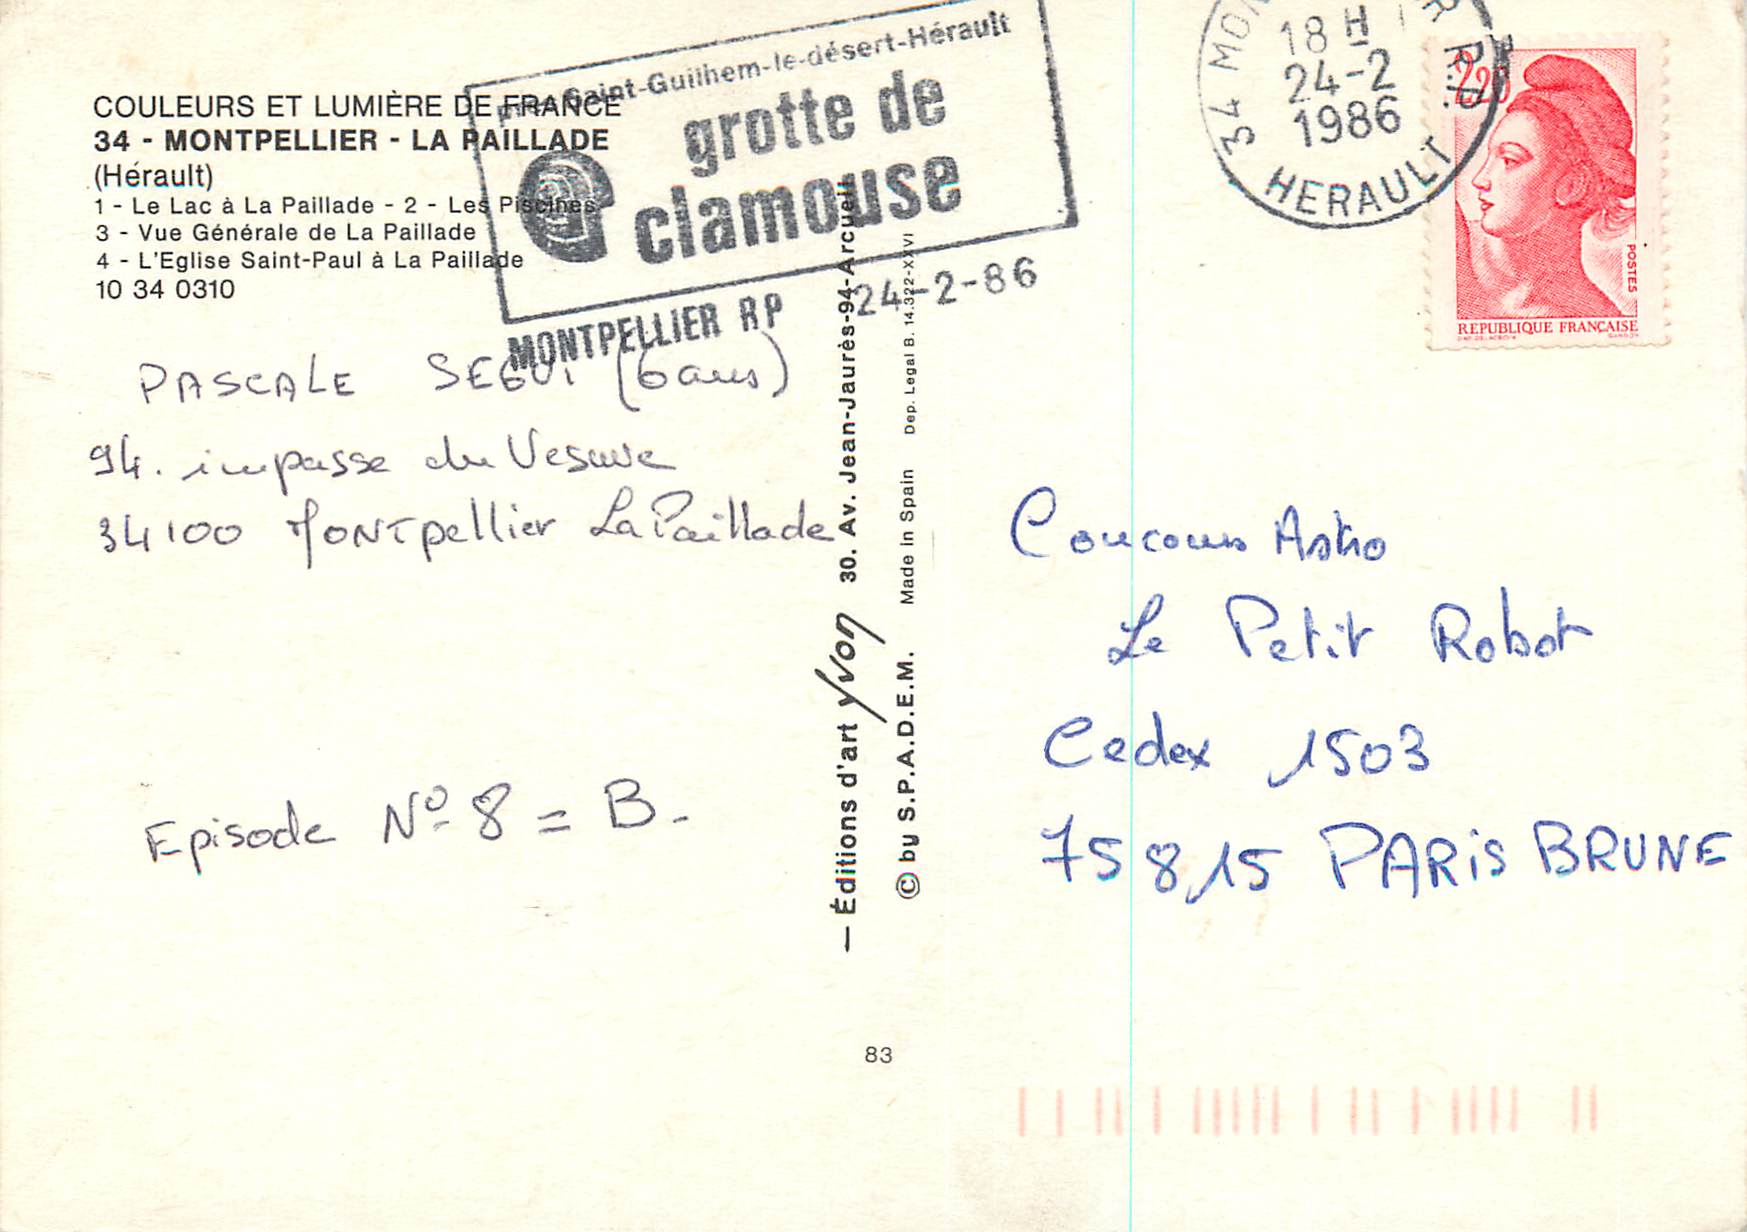 COULEURS ET LUMIÈRE DE FRANCE
34 - MONTPELLIER - LA PAILLADE
(Hérault)
1 - Le Lac à La Paillade - 2 - Les Piscines
3 - Vue Générale de La Paillade
4 - L'Eglise Saint-Paul à La Paillade
10 34 0310
Saint-Guilhem-le-désert-Hérault
grotte de
clamouse
MONTPELLIER RP 24-2-86
PASCALE SEGUI (6 ans)
94. impasse du Vesuve
34100 MONTpellier La Paillade
Episode Nº 8 = B.
— Éditions d'art Yvon 30. Av. Jean-Jaurès-94-Arcueil
© by S.P.A.D.E.M. Made in Spain Dep. Legal B. 14.322-XXVI
83
18 H
24-2
1986
34 MON R RP
HERAULT
2,20
POSTES
REPUBLIQUE FRANÇAISE
Concours Astro
Le Petit Robot
Cedex 1503
75815 PARIS BRUNE